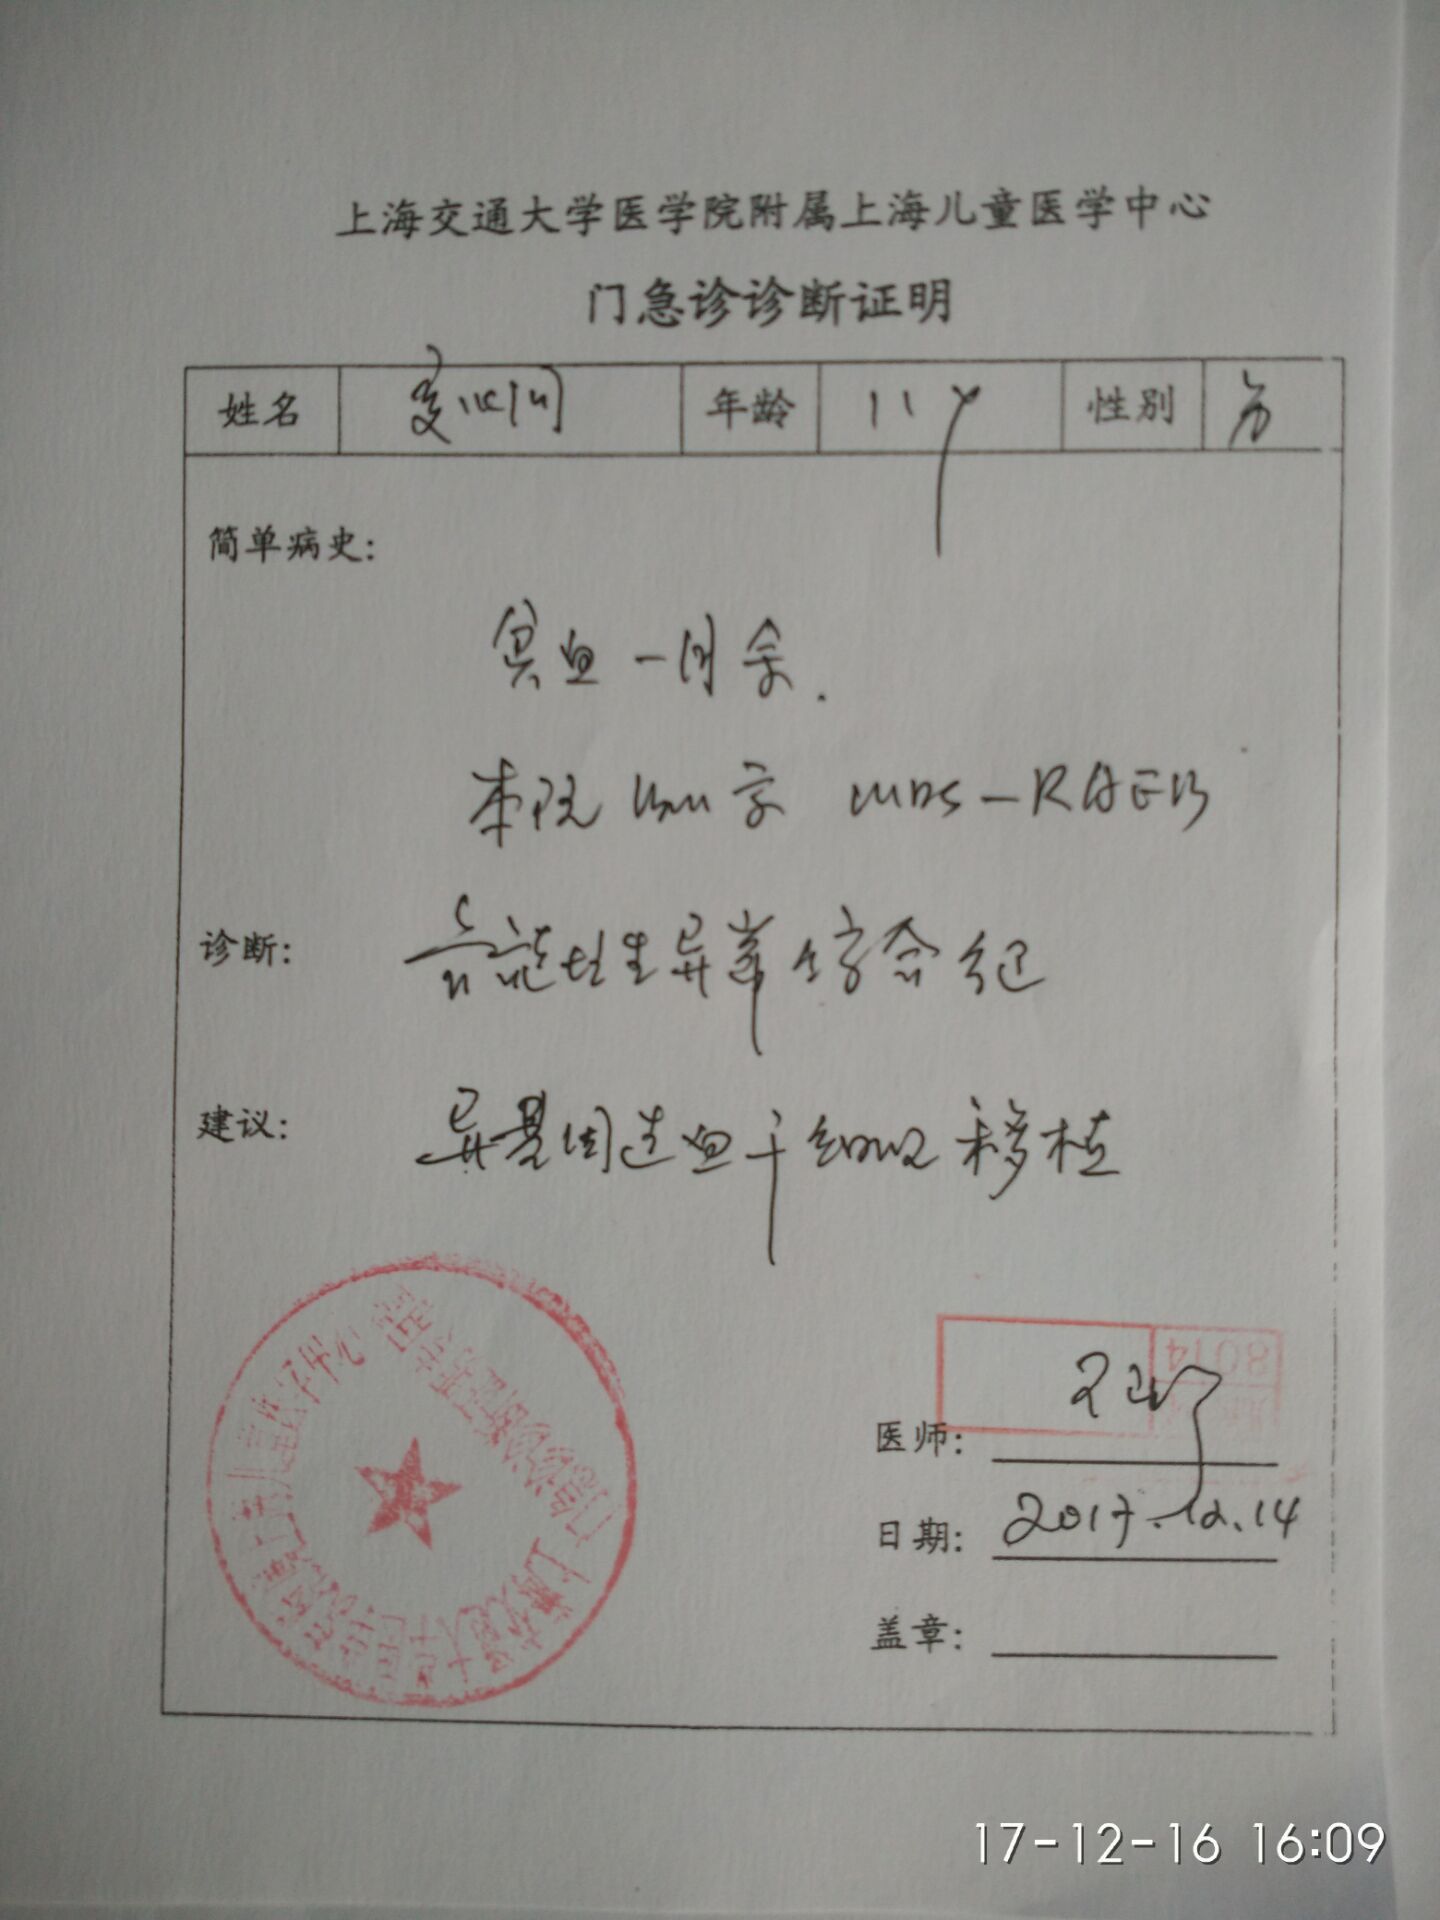 上海交通大学医学院附属上海儿童医学中心
门急诊诊断证明
姓名 年龄 11Y 性别 男
简单病史:
贫血一月余.
本院 MDS-RAEB
诊断: 异常综合征
建议: 异基因造血干细胞移植
8014
医师:
日期: 2017.12.14
盖章:
上海交通大学医学院附属上海儿童医学中心
门急诊诊断证明专用章
17-12-16 16:09